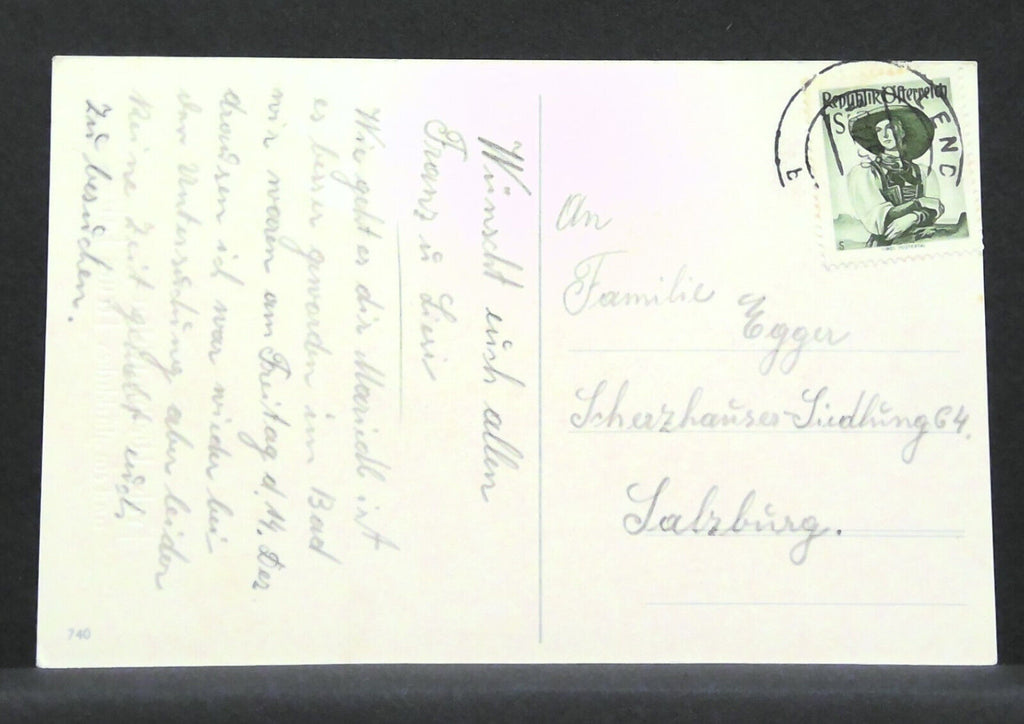 Wünscht euch allen
Franz u Lieri
Wie geht es dir Mariedl ist
es besser geworden im Bad
wir waren am Freitag d. 14. Dez
draussen ich war wieder bei
der Untersuchung aber leider
keine Zeit gehabt euch
zu besuchen.
740
An
Familie Egger
Scherzhauser-Siedlung 64.
Salzburg.
Republik Österreich
1S